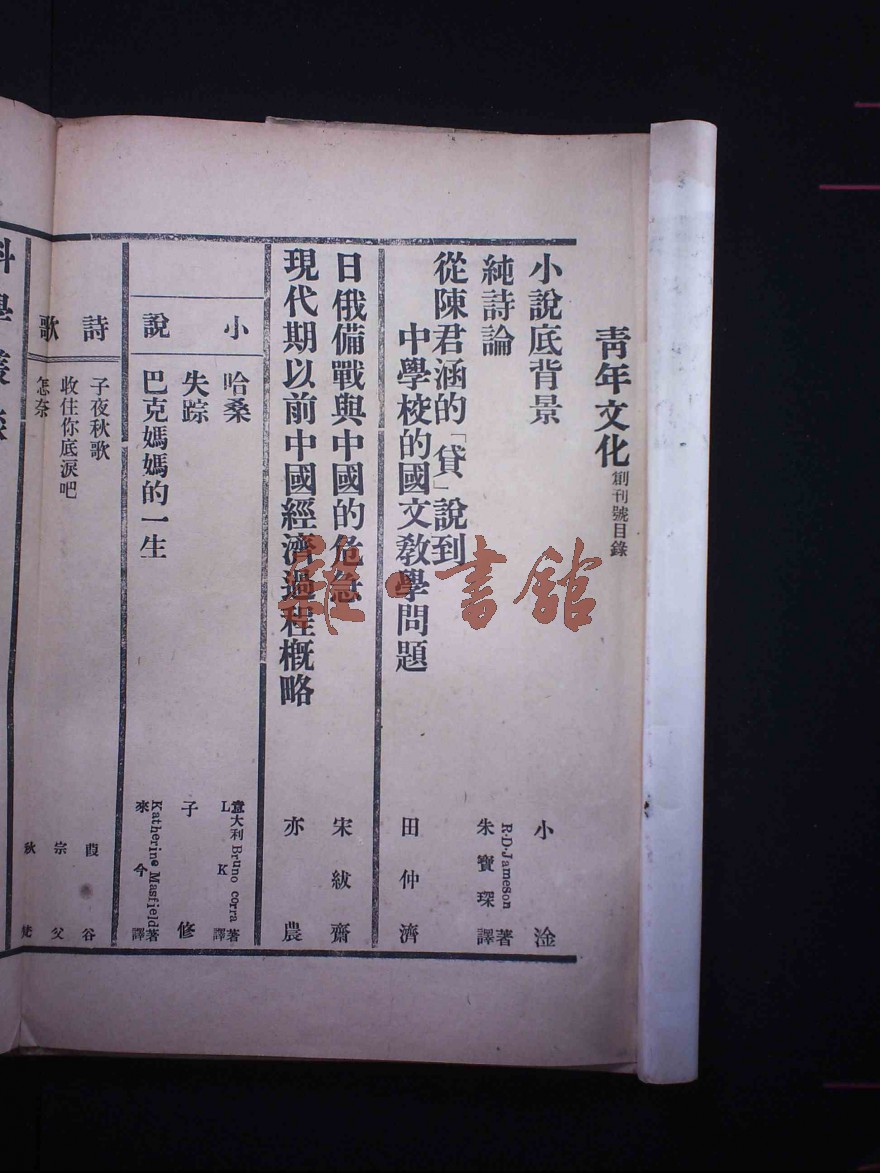 青年文化創刊號目錄
小說底背景 小淦
純詩論 R.D.Jameson著 朱寶琛譯
從陳君涵的「貸」說到
中學校的國文教學問題 田仲濟
日俄備戰與中國的危急 宋紱齋
現代期以前中國經濟過程概略 亦農
小說
哈桑 意大利Bruno corra著 LK譯
失踪 子修
巴克媽媽的一生 Katherine Masfield著 來今譯
詩歌
子夜秋歌 葭谷
收住你底淚吧 宗父
怎奈 秋
科學叢
羅·書館